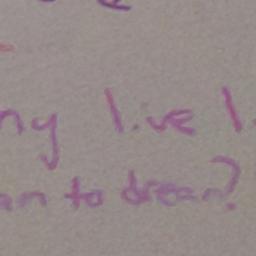 ny live l
an to dream?